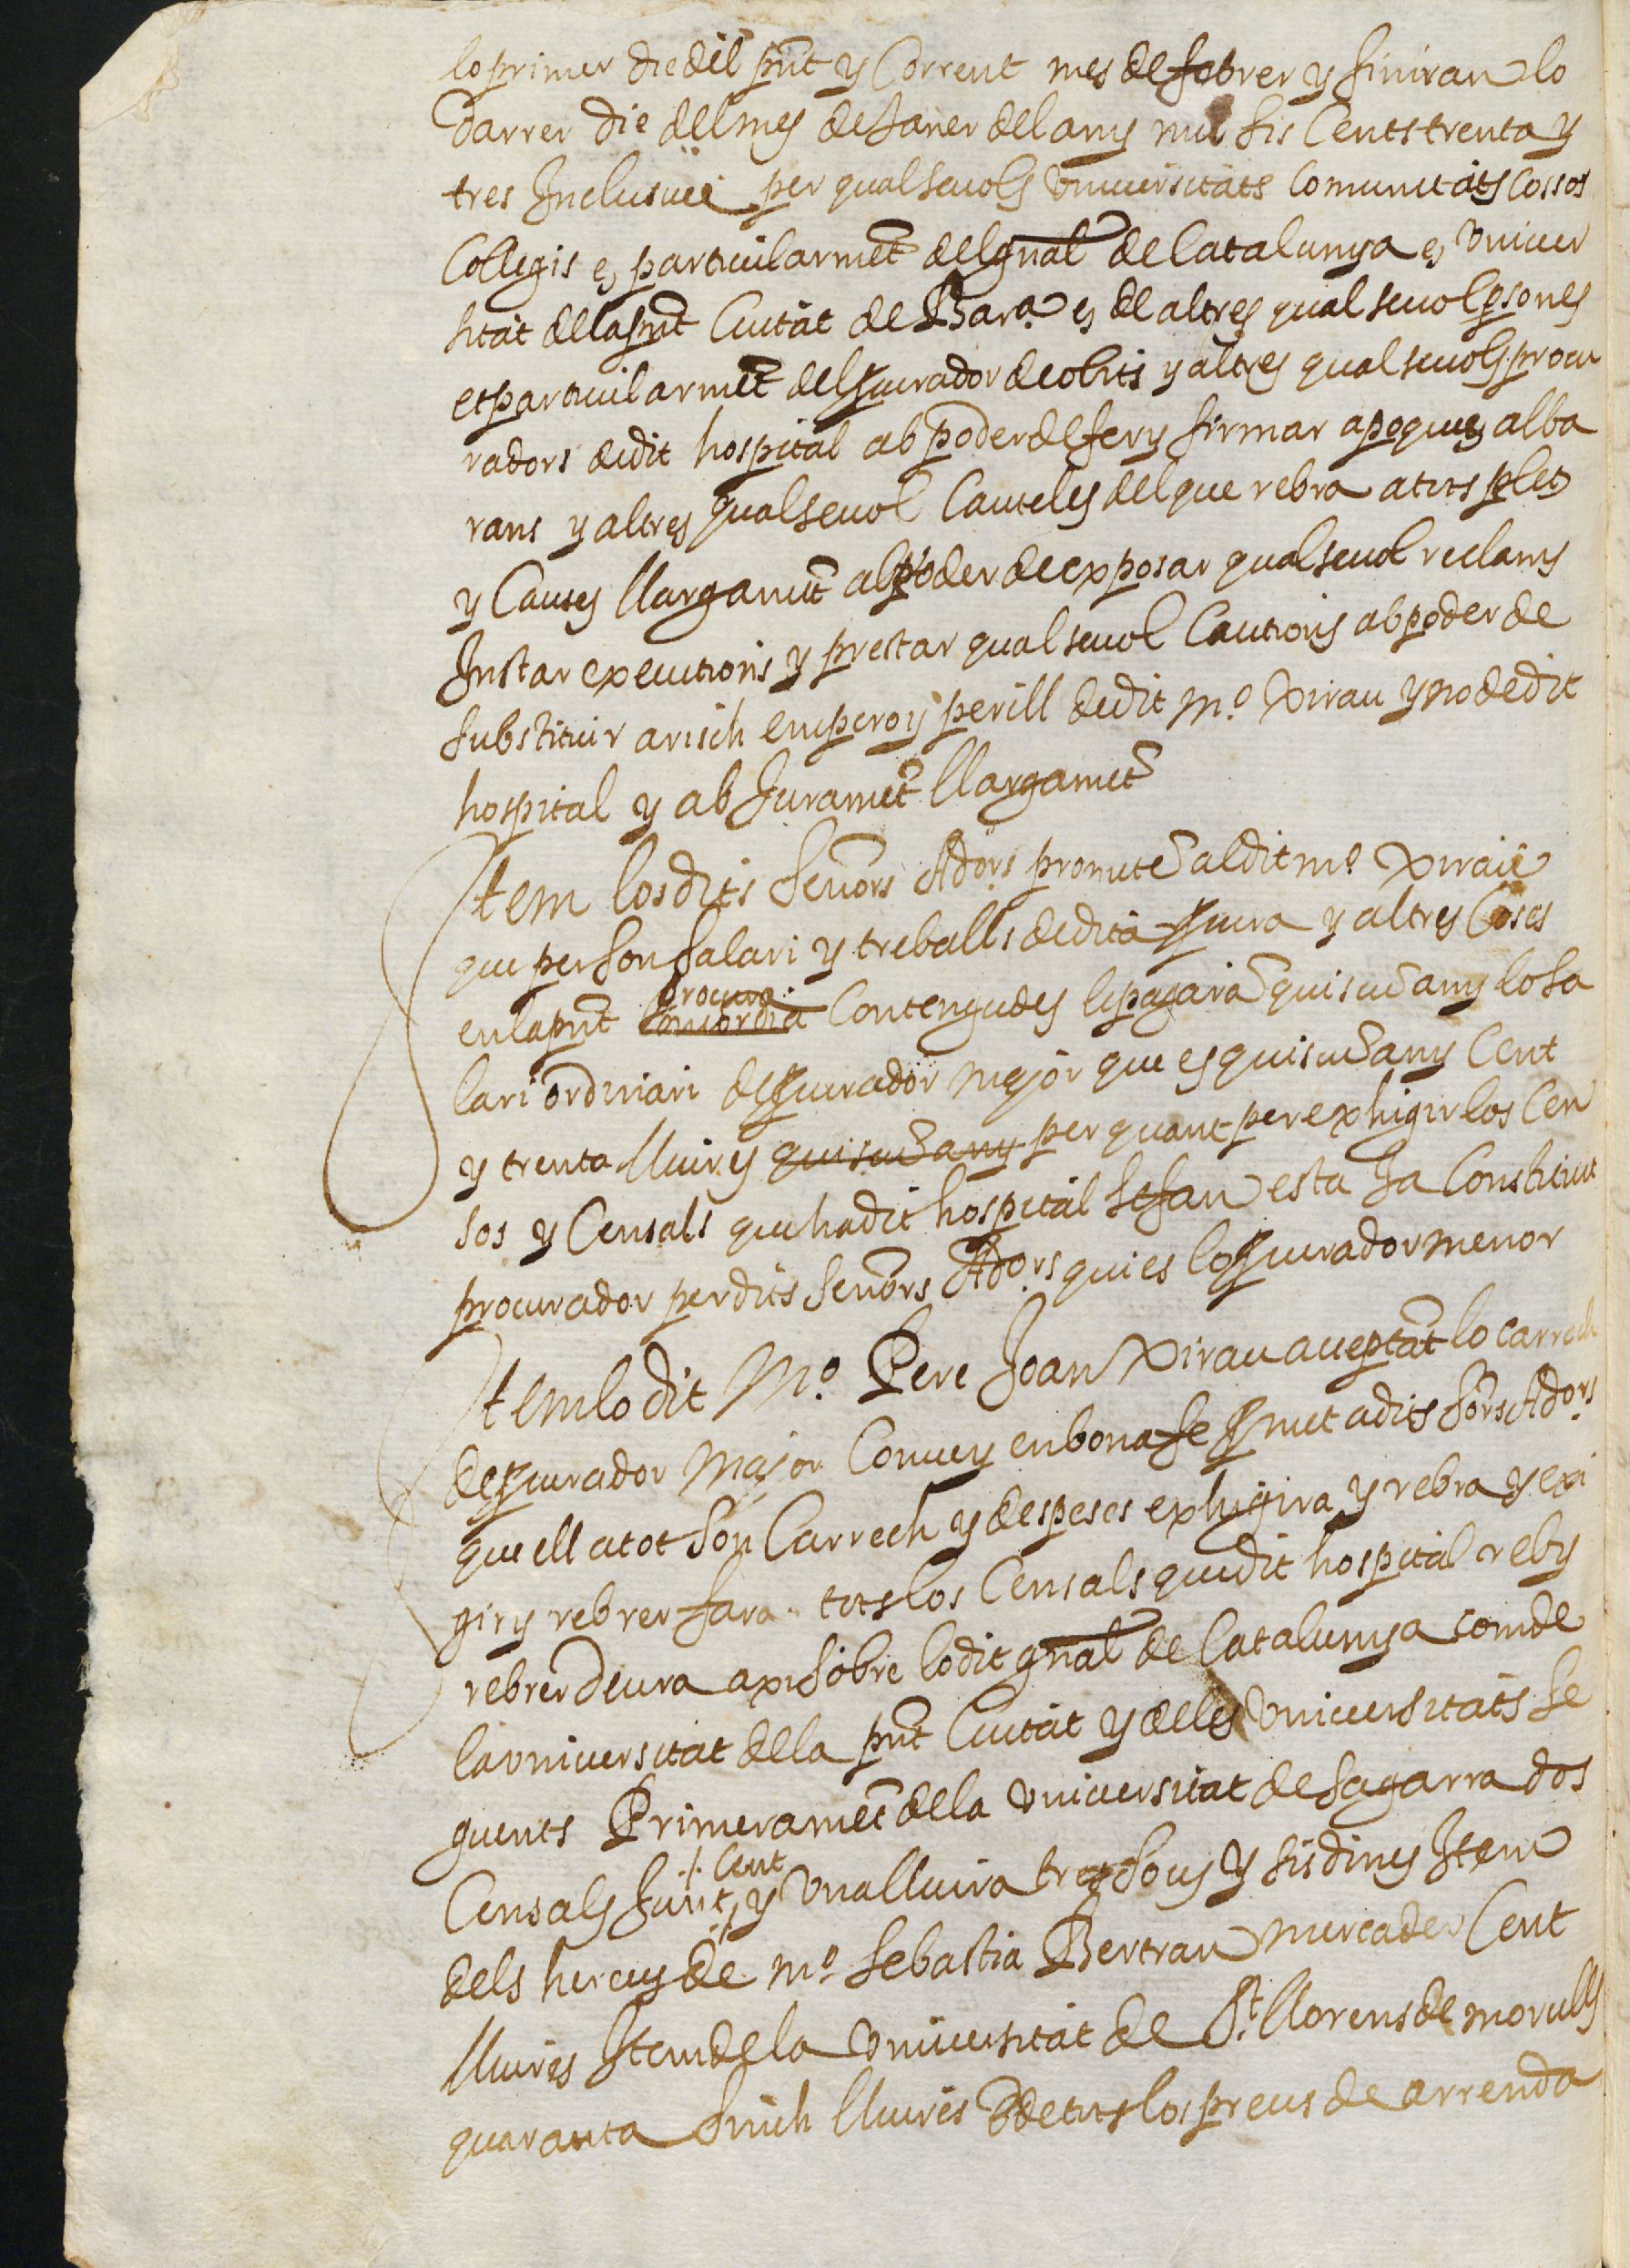 lo primer die del pñt y Corrent mes de febrer y finiran lo
darrer die del mes de Janer del any mil sis Cents trenta y
tres Inclusiue per qualseuols vniuersitats Comunitats Cossos
Collegis e, particularmẽt del gñal de Catalunya e, vniuer
sitat dela pñt Ciutat de Bar.ª e, de altres qualseuol psones
et particularmẽt del pcurador de obits y altres qualseuols procu
radors de dit hospital ab poder de fer y firmar apoques alba
rans y altres qualseuol Cauteles del que rebra a tots plets
y Causes llargamẽt ab poder de exposar qualseuol reclams
Instar executions y prestar qualseuol Cautions ab poder de
substituir a risch empero y perill de dit m.º Xirau y no de dit
hospital y ab Juramẽt llargamẽt
Item los dits Señors Ad.ors prometẽ al dit m.º Xirau
que per son salari y treballs de dita pcura y altres Coses
en la pñt procura Concordia Contengudes li pagarã quiscũ any lo sa
lari ordinari de pcurador major que es quiscũ any Cent
y trenta lliures quiscũ any per quant per exhigir los Cen
sos y Censals que ha dit hospital se fan esta Ja Constituit
procurador per dits Señors Ad.ors qui es lo pcurador menor
Item lo dit M.º Pere Joan Xirau acceptãt lo carrech
de pcurador Major Conue y en bona fe pmet a dits Sõrs Ad.ors
que ell a tot son Carrech y despeses exhigira y rebra y exi
gir y rebrer fara tots los Censals que dit hospital reb y
rebrer deura axi sobre lo dit gñal de Catalunya com de
la vniuersitat dela pñt Ciutat y deles vniuersitats se
guents Primeramẽt dela vniuersitat de Sagarra dos
Censals sunt, ./. Cent y vna lliura tres sous y sis dines Item
dels hereus de m.º Sebastia Bertran mercader Cent
lliures Item de la vniuersitat de S.t Llorens de morulls
quaranta sinch lliures E de tots los preus de arrenda